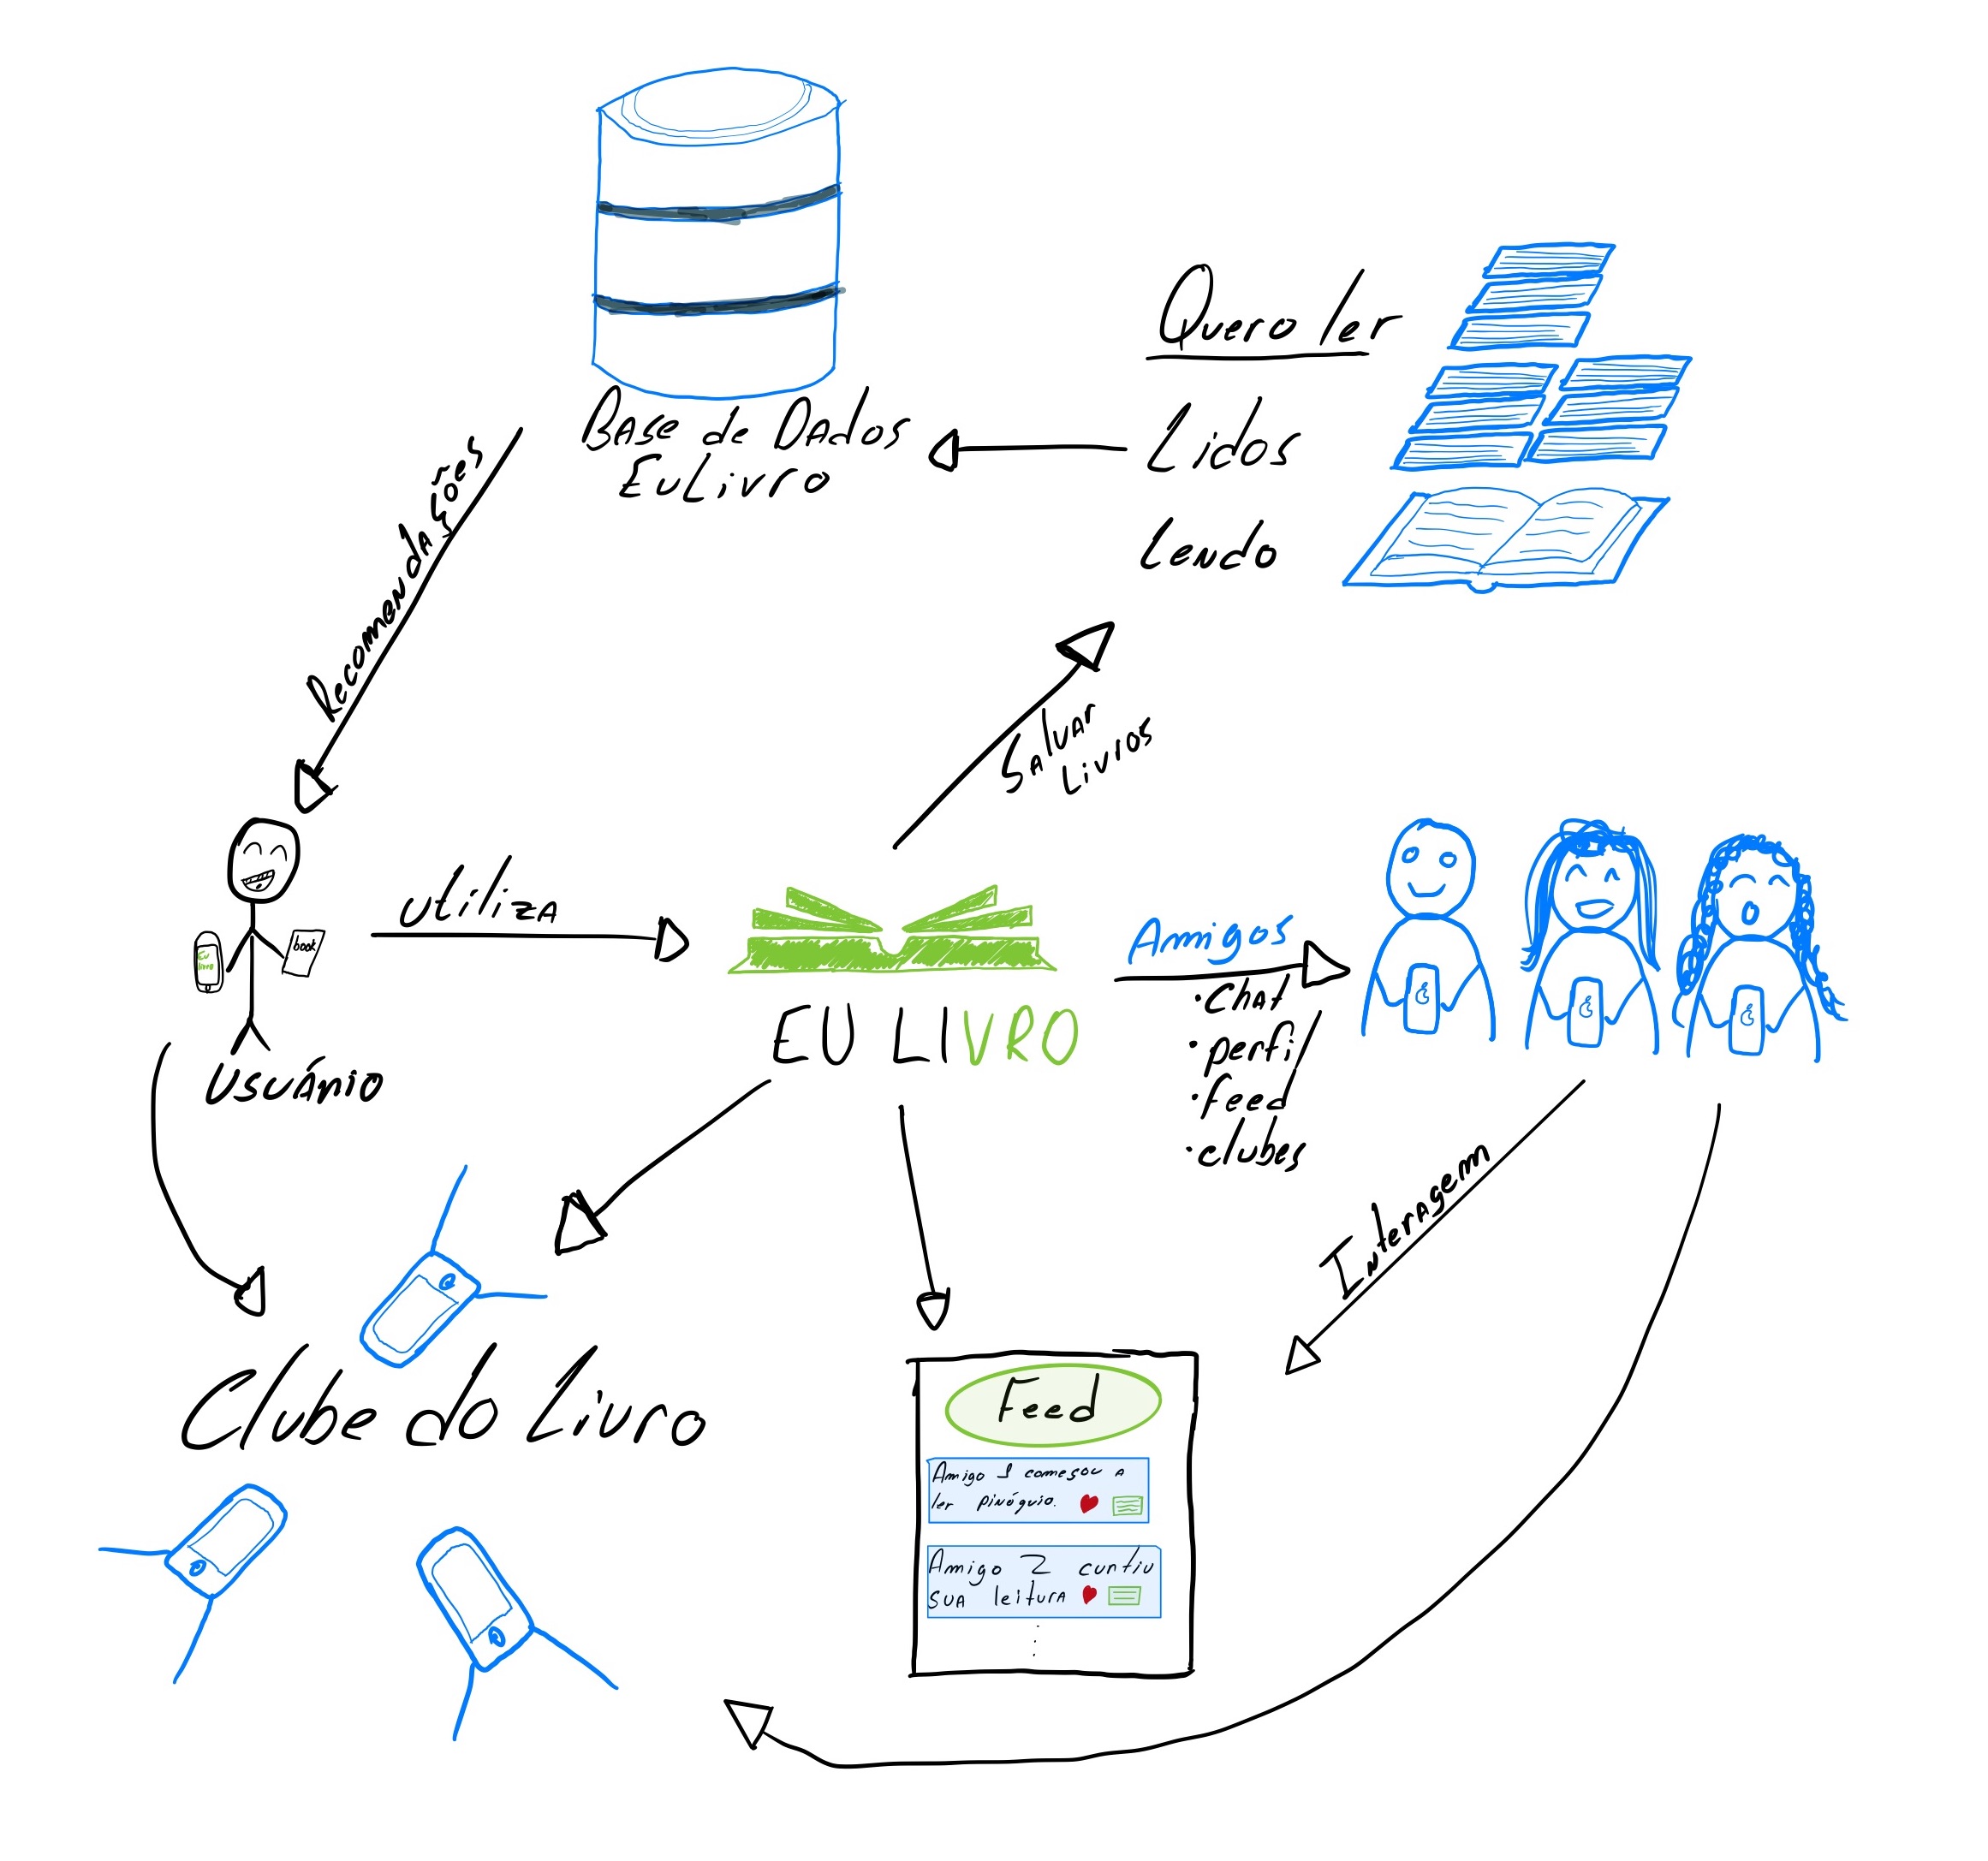 Quero ler
Base de Dados
EuLivro
Lidos
Lendo
Recomendações
Salvar
Livros
Eu
livro
book
utiliza
Usuário
EU LIVRO
Amigos
• Chat
• perfil
• feed
• clubes
Interagem
Clube do Livro
Feed
Amigo 1 começou a
ler pinóquio.
Amigo 2 curtiu
sua leitura